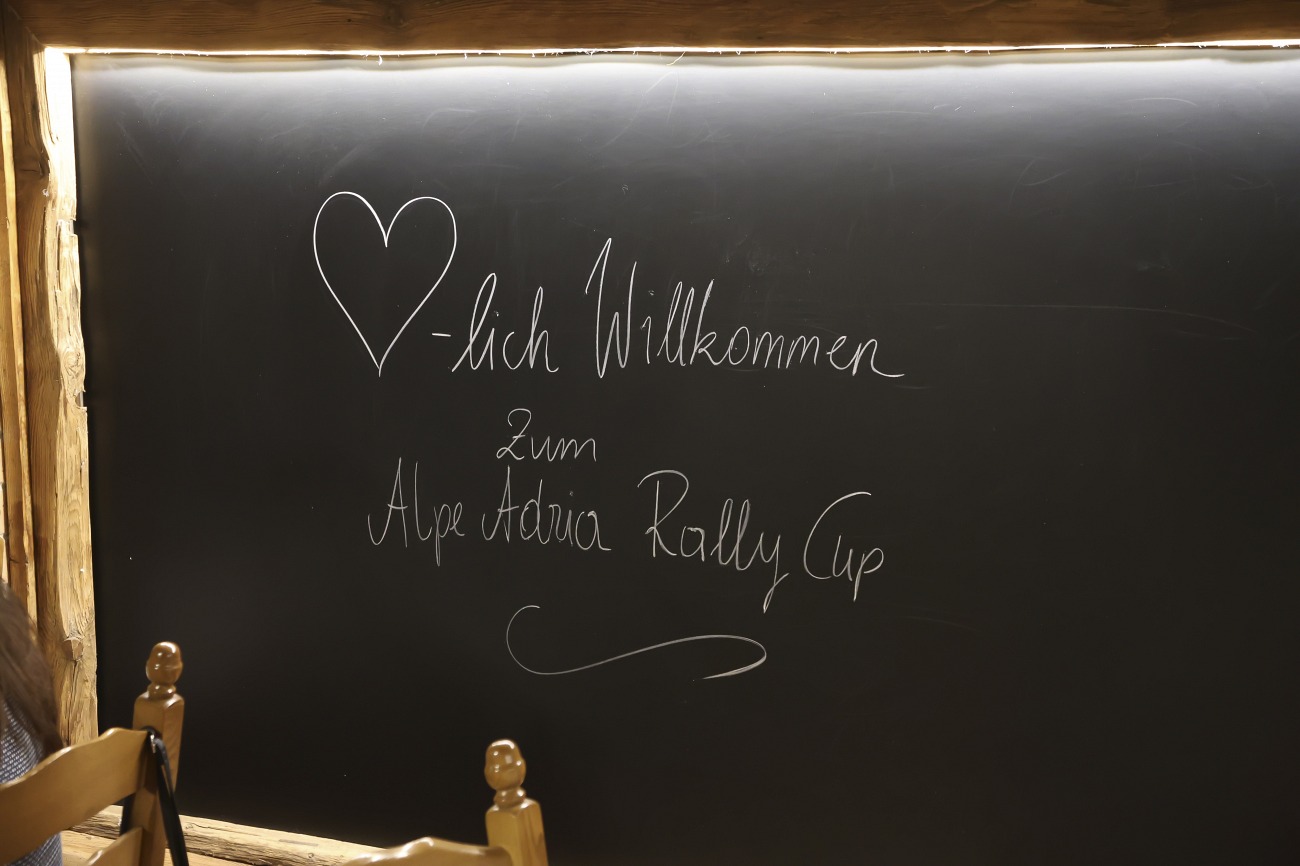 ♡-lich Willkommen
zum
Alpe Adria Rally Cup